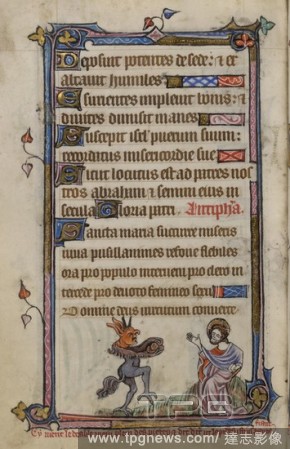 Deposuit potentes de sede: & ex
altavit humiles
Esurientes implevit bonis: &
divites dimisit inanes
Suscepit isrl puerum suum:
recordatus misericordie sue
Sicut locutus est ad patres nos
tros abraham & semini eius in
secula Gloria patri. Antipha.
Sancta maria succurre miseris
iuva pusillanimes refove flebiles
ora pro populo interveni pro clero in
tercede pro devoto femineo sexu
Domine deus virtutum converte
Cy
TPG
www.tpgnews.com / 達志影像